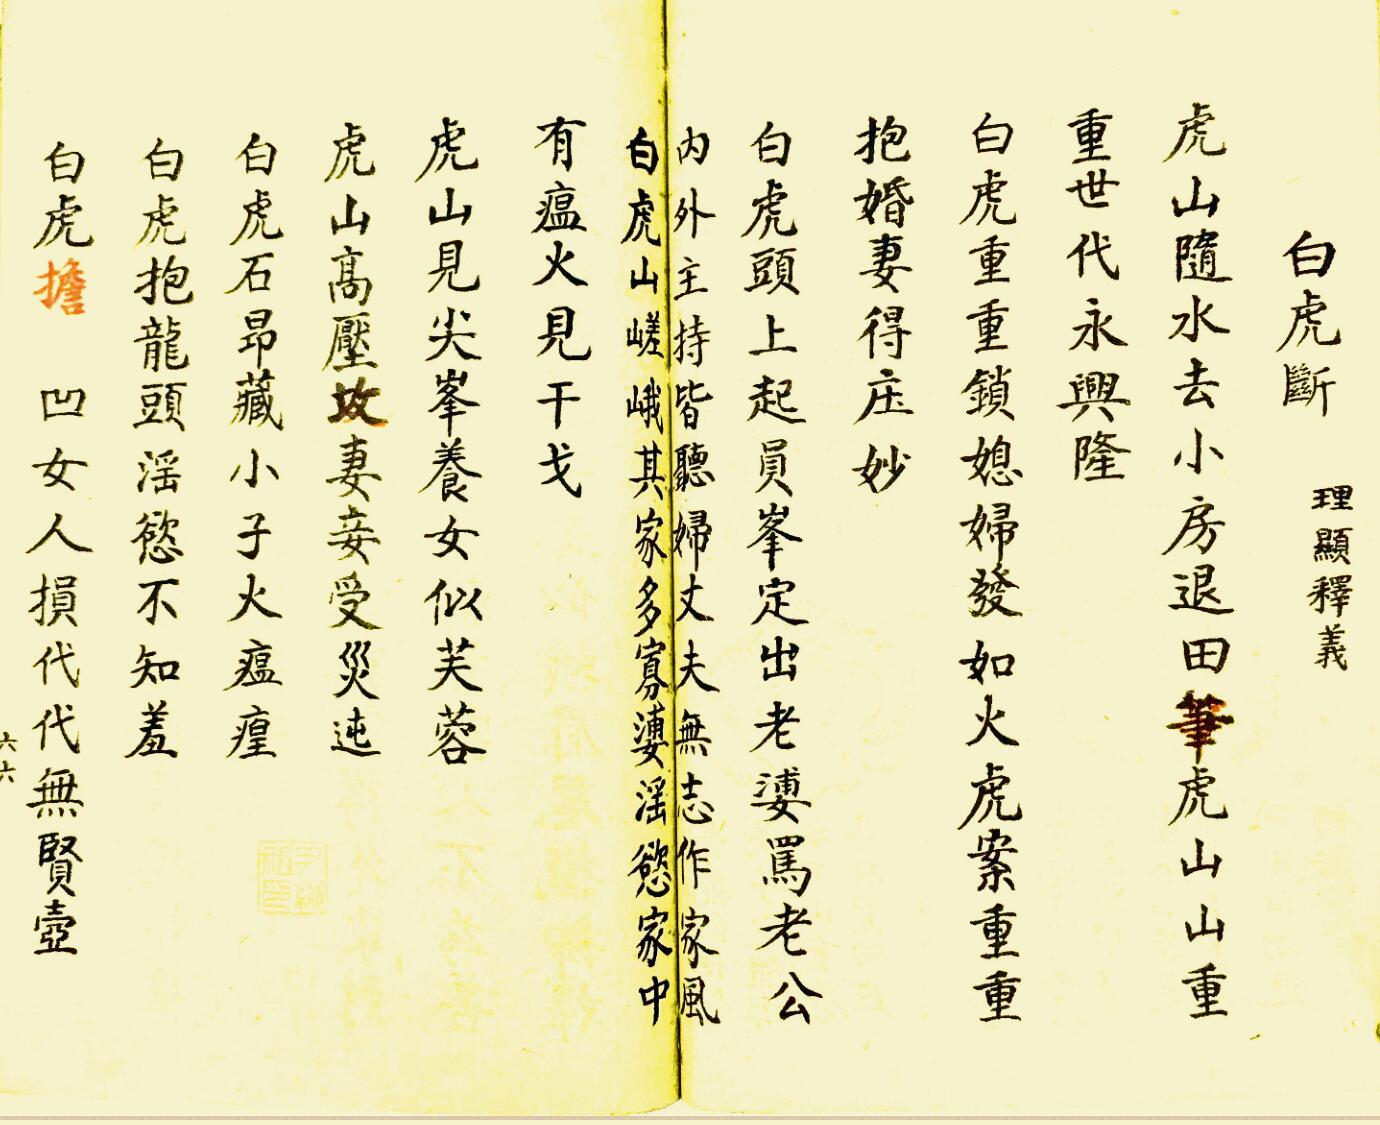 白虎斷 理顯釋義
虎山隨水去小房退田筆虎山山重
重世代永興隆
白虎重重鎖媳婦發如火虎案重重
抱婚妻得庄妙
白虎頭上起員峯定出老婆罵老公
內外主持皆聽婦丈夫無志作家風
白虎山嵯峨其家多寡婆滛慾家中
有瘟火見干戈
虎山見尖峯養女似芙蓉
虎山高壓坟妻妾受災迍
白虎石昂藏小子火瘟瘟
白虎抱龍頭滛慾不知羞
白虎擔凹女人損代代無賢壼
六六